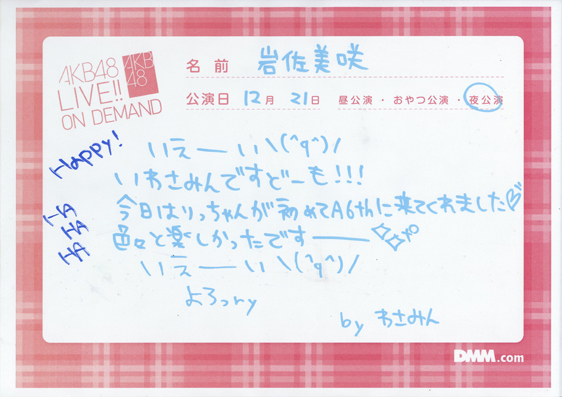 AKB48
LIVE!!
ON DEMAND
AKB
48
名前 岩佐美咲
公演日 12月 21日 昼公演・おやつ公演・夜公演
Happy!
いえーい\(^q^)/
いわさみんですどーも!!!
今日はりっちゃんが初めてA6thに来てくれました♡
色々と楽しかったですー
いえーい\(^q^)/
よろっry
by わさみん
DMM.com